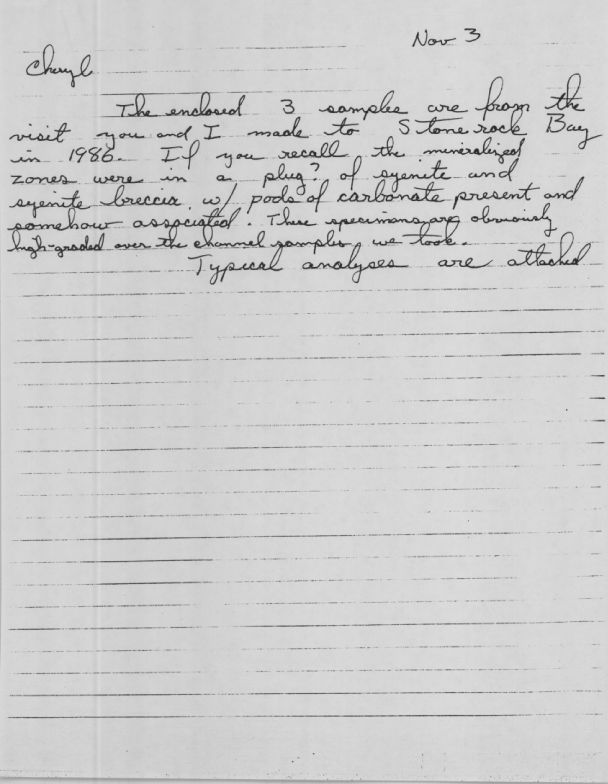 Nov 3
Cheryl
The enclosed 3 samples are from the
visit you and I made to Stonerock Bay
in 1986. If you recall the mineralized
zones were in a plug? of syenite and
syenite breccia w/ pods of carbonate present and
somehow associated. These specimens are obviously
high-graded over the channel samples we took.
Typical analyses are attached